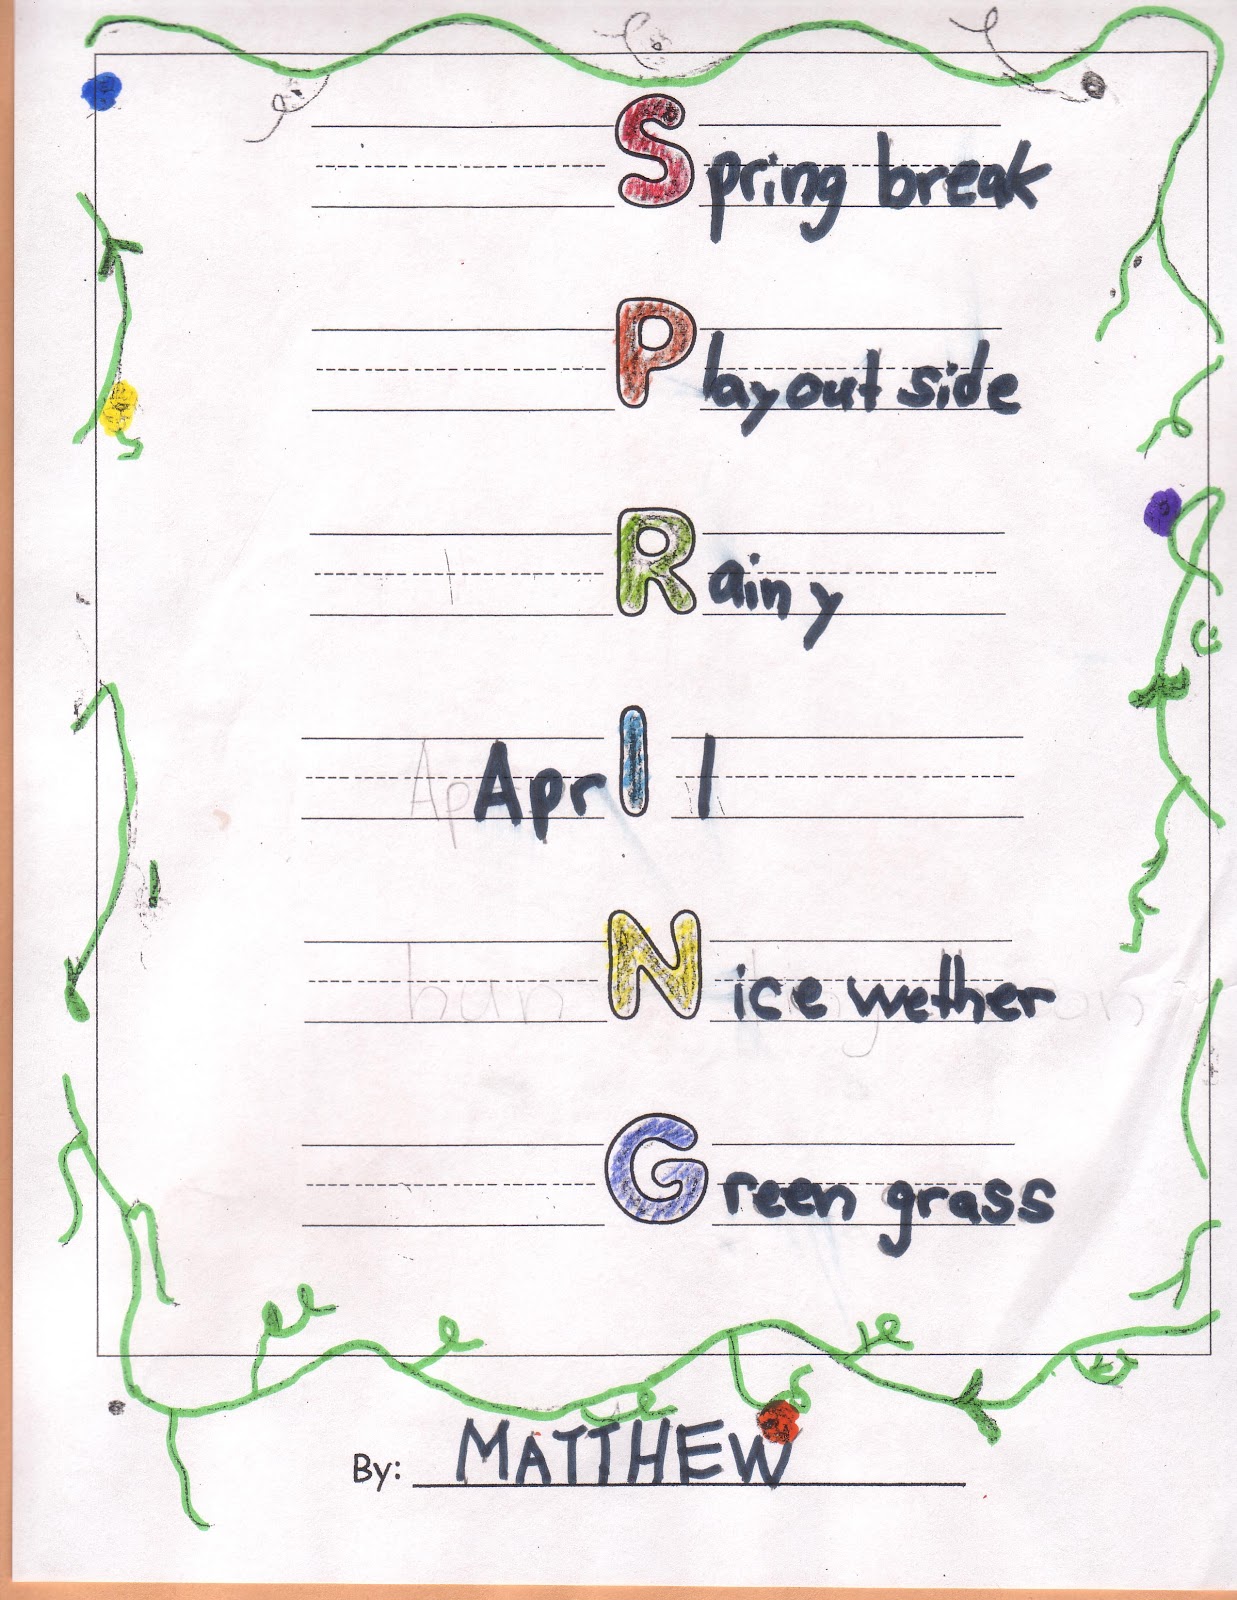 Spring break
Play out side
Rainy
AprIl
Nice wether
Green grass
By: MATTHEW